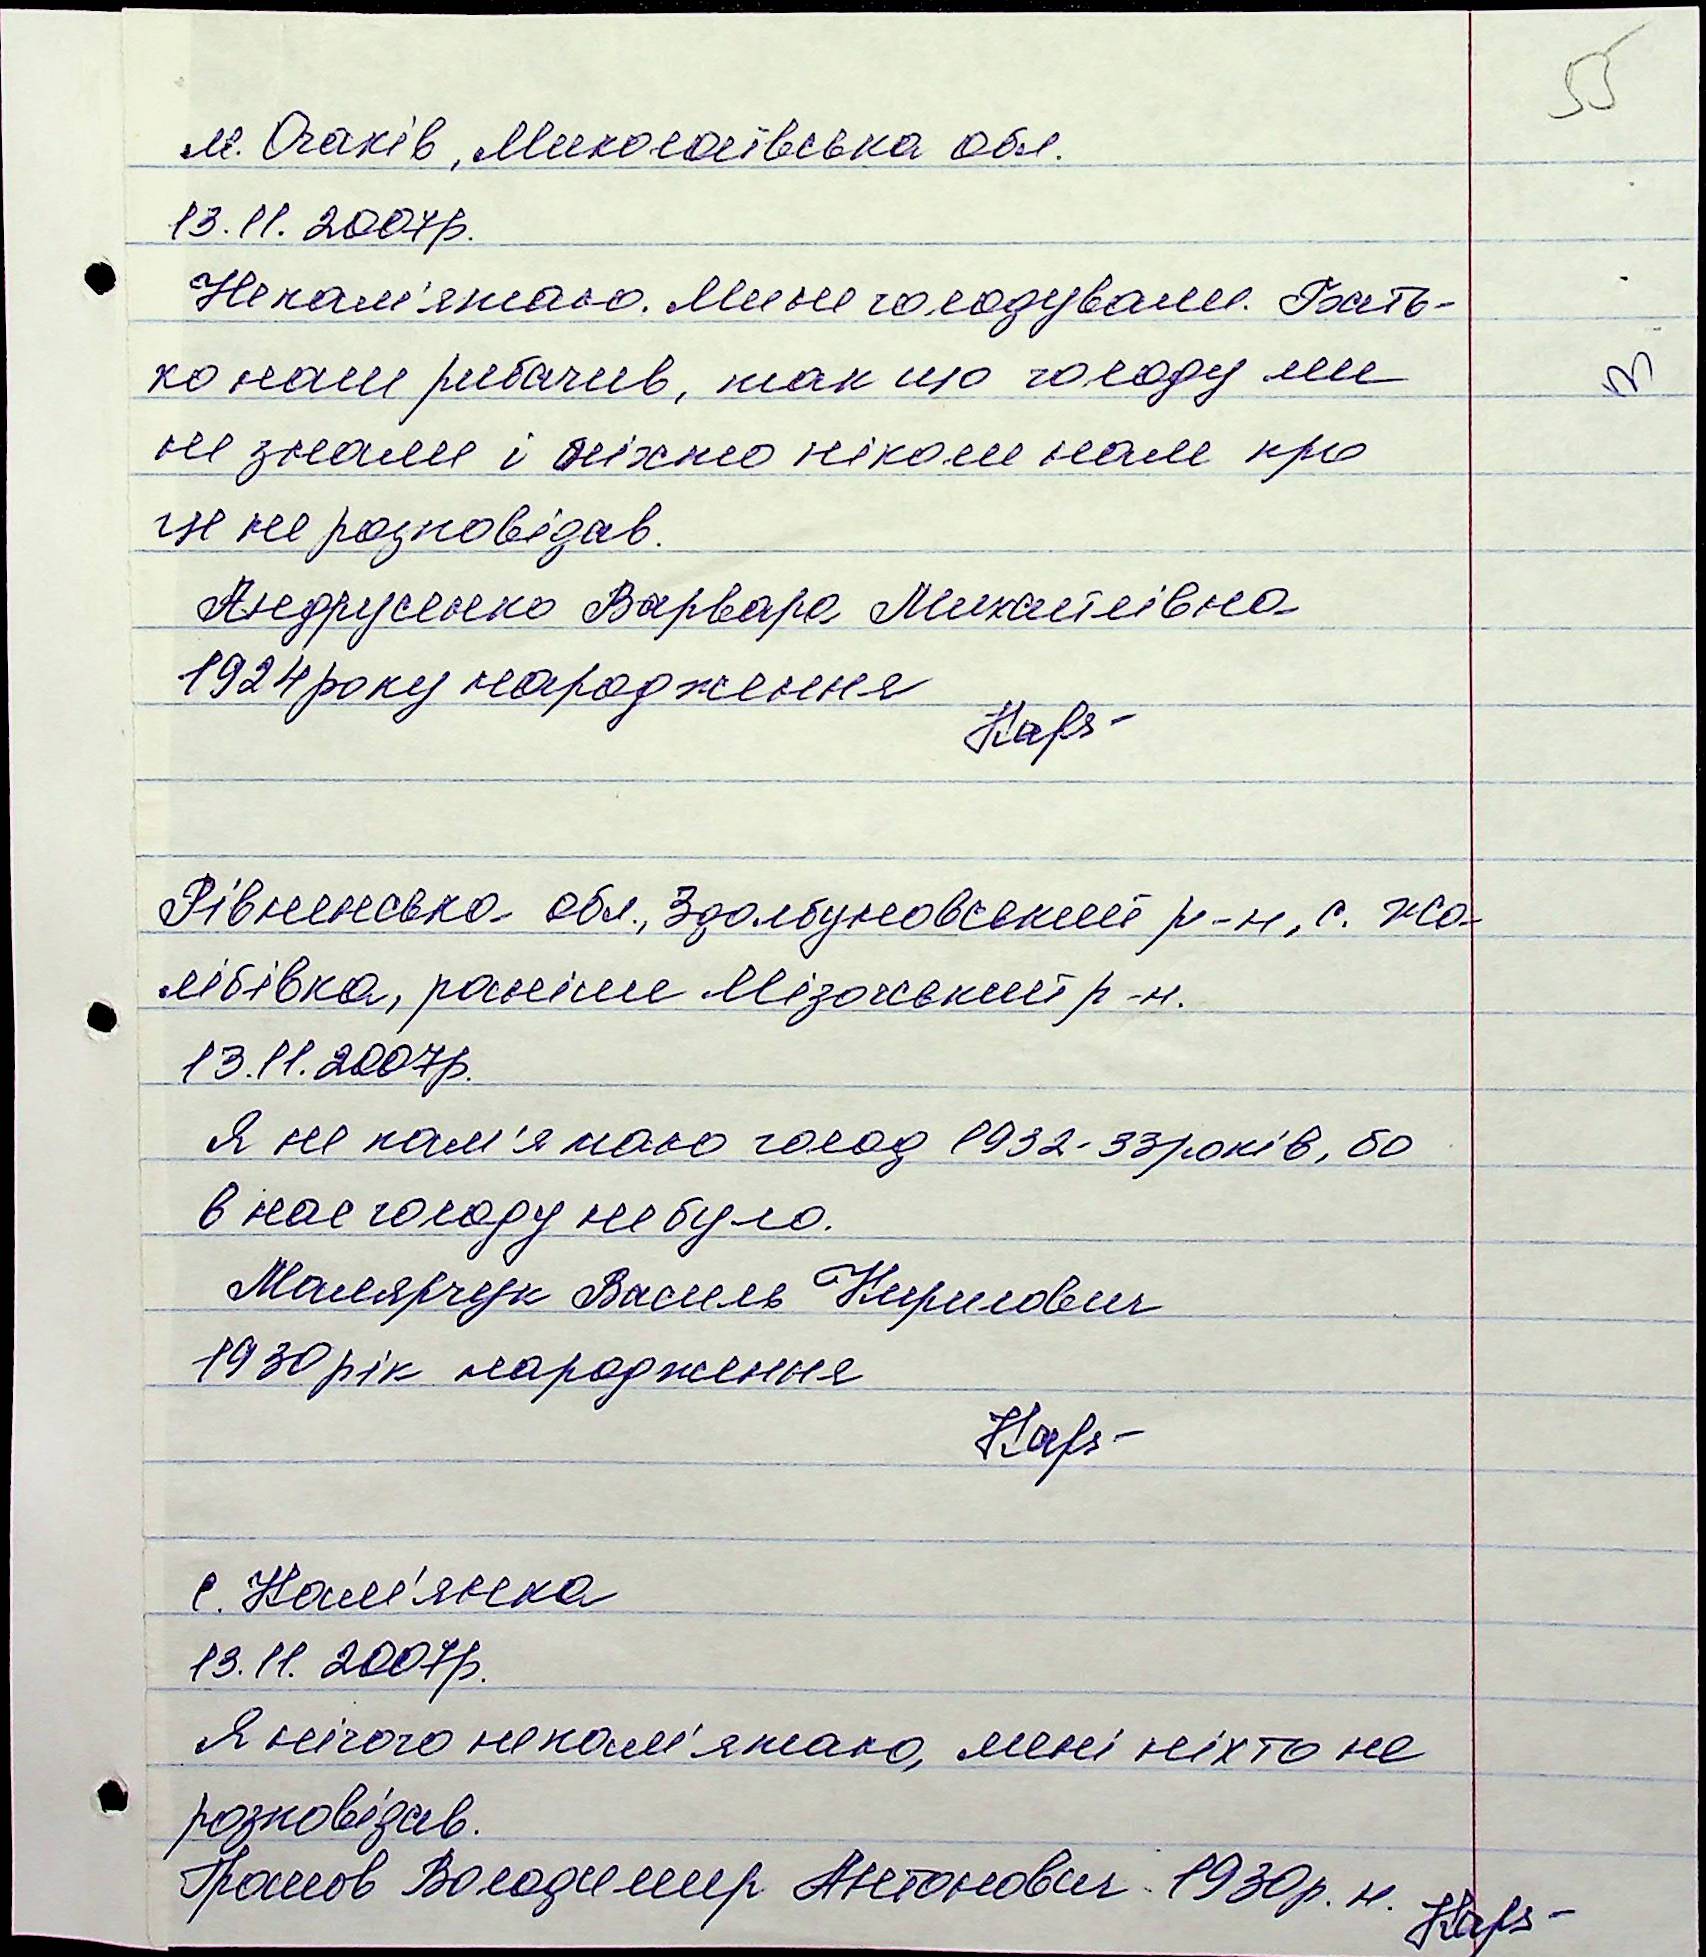 55
м. Очаків, Миколаївська обл.
13.11.2007р.
Не пам'ятаю. Ми не голодували. Бать-
ко наш рибачив, так що голоду ми
не знали і ніхто ніколи нам про
це не розповідав.
Андрусенко Варвара Михайлівна
1924 року народження
Рівненська обл., Здолбуновський р-н, с. Жо-
лібівка, раніше Мізочський р-н.
13.11.2007р.
Я не пам'ятаю голод 1932-33 років, бо
в нас голоду не було.
Малярчук Василь Кирилович
1930 рік народження
с. Кам'янка
13.11.2007р.
Я нічого не пам'ятаю, мені ніхто не
розповідав.
Громов Володимир Антонович 1930 р. н.